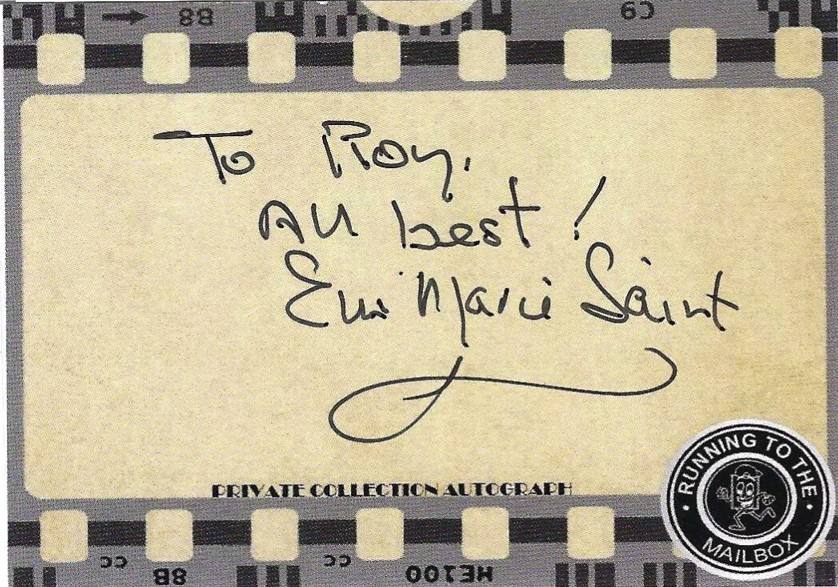 88
C9
To Roy,
All best!
Eva Marie Saint
PRIVATE COLLECTION AUTOGRAPH
RUNNING TO THE
MAILBOX
CC
8B
CC
ME100